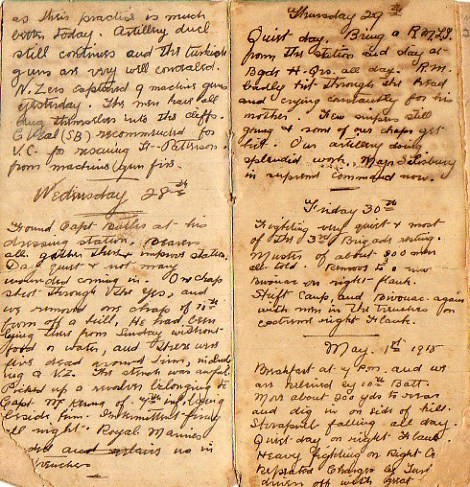 as this practice is much
today. Artillery duel
still continues and the turkish
guns are very well concealed.
N. Zers captured 9 machine guns
yesterday. The men have all
dug themselves into the cliffs.
(SB) recommended for
V.C. for rescuing Lt. Paterson
from machine gun fire.
Wednesday 28th
Found Capt Butler at his
dressing station. Bearers
all gather there & improve station.
Day quiet & not many
wounded coming in. One chap
shot through the eyes, and
we remove one chap of 11th
from off a hill, He had been
lying there from Sunday without
food or water, and there were
five dead around him, includ
ing a N.Z. The stench was awful.
Picked up a revolver belonging to
Capt of 4th inf. lying
beside him. Intermittent firing
all night. Royal Marine
and us in
trenches
Thursday 29th
Quiet day. Bring a R.M.L.I.
from the station and stay at
Bgde H.Qrs. all day. R.M.
badly hit through the head
and crying constantly for his
mother. Few snipers still
going & some of our chaps get
hit. Our artillery doing
splendid work. Major
in supreme command now.
Friday 30th
Fighting very quiet & most
of the 3rd Brigade resting.
Muster of about 800 men
all told. Remove to a new
Bivouac on right flank.
Shift Camp, and Bivouac again
with men in the trenches on
extreme right flank.
May. 1st 1915
Breakfast at 4 p.m. and we
are relieved by 10th Batt.
Move about 200 yds to rear
and dig in on side of hill.
Shrapnel falling all day.
Quiet day on right flank.
Heavy fighting on Right C.
Repeated Charges by Turks
driven off with great